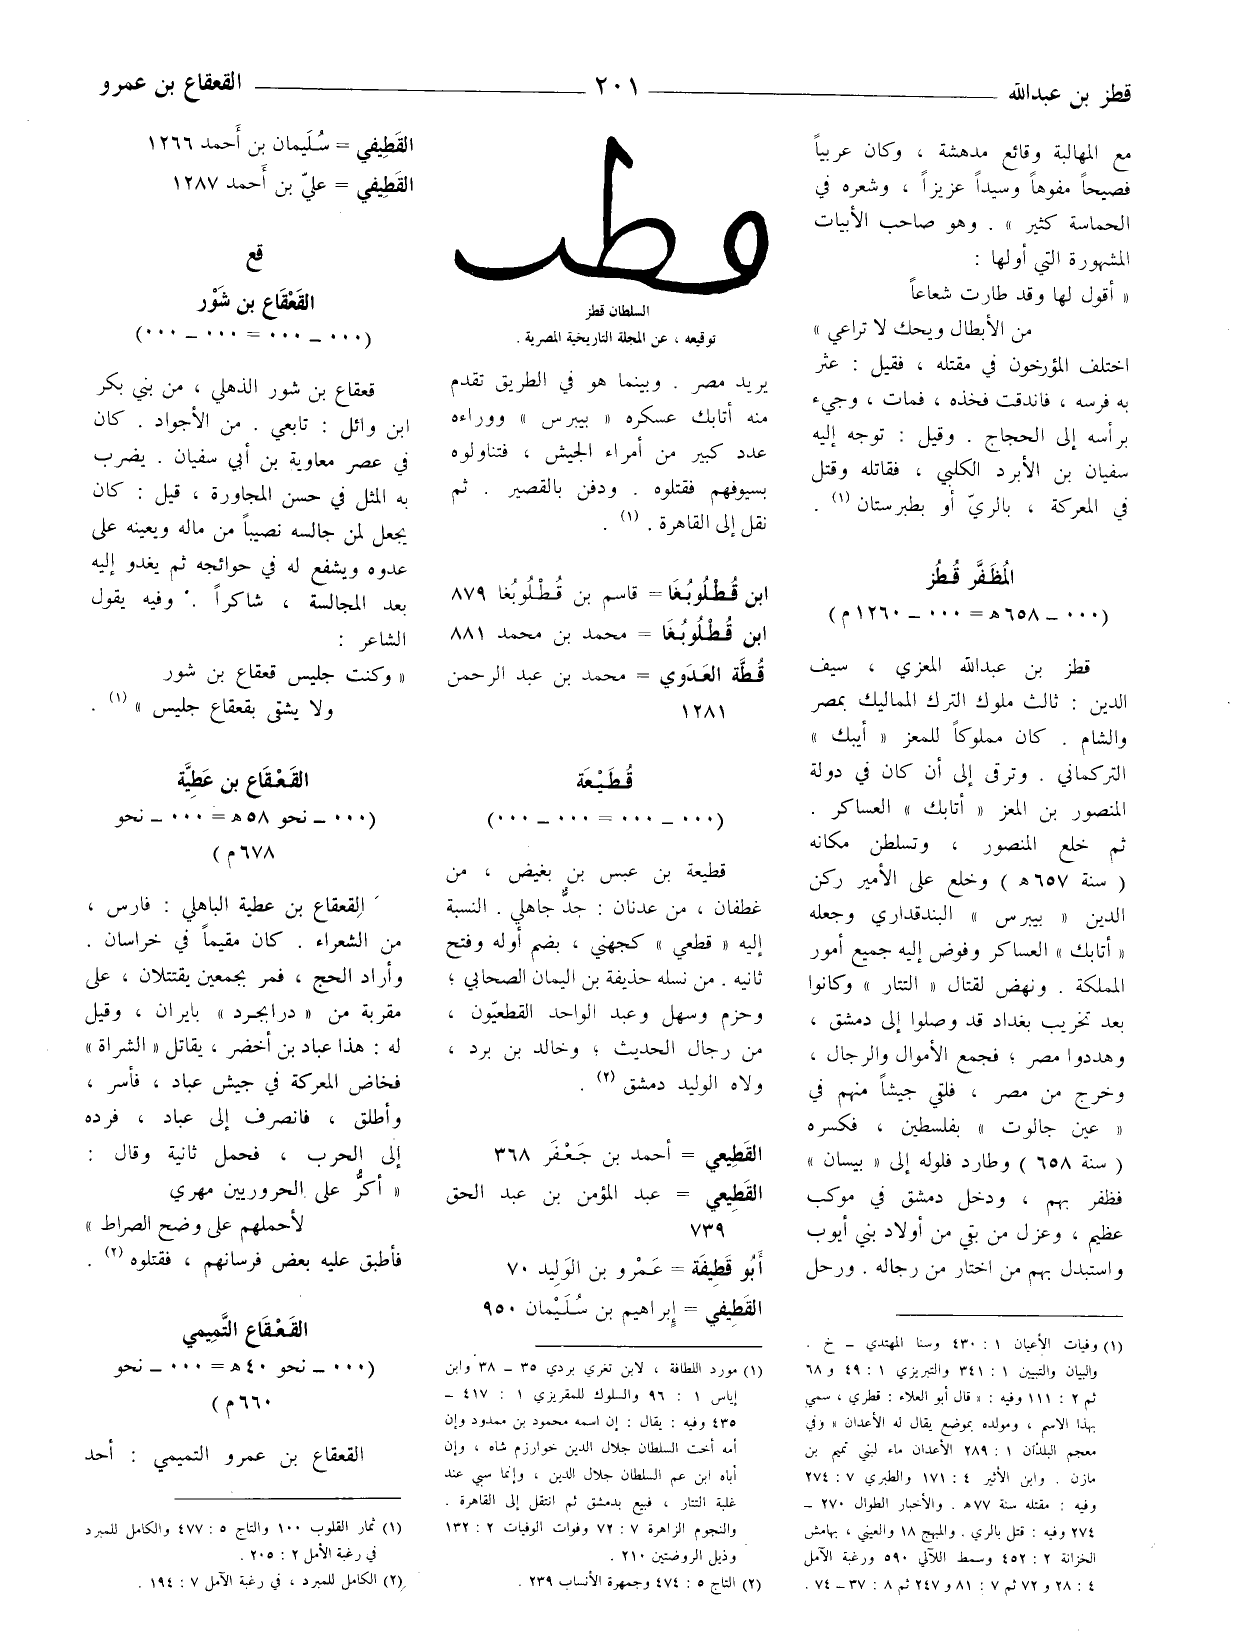 قطز بن عبدالله ٢٠١ القعقاع بن عمرو
مع المهالبة وقائع مدهشة ، وكان عربياً
فصيحاً مفوهاً وسيداً عزيزاً ، وشعره في
الحماسة كثير » . وهو صاحب الأبيات
المشهورة التي أولها :
« أقول لها وقد طارت شعاعاً
من الأبطال ويحك لا تراعي »
اختلف المؤرخون في مقتله ، فقيل : عثر
به فرسه ، فاندقت فخذه ، فمات ، وجيء
برأسه إلى الحجاج . وقيل : توجه إليه
سفيان بن الأبرد الكلبي ، فقاتله وقتل
في المعركة ، بالريّ أو بطبرستان (١) .
المُظَفَّر قُطُز
(٠٠٠ ــ ٦٥٨هـ = ٠٠٠ ــ ١٢٦٠م)
قطز بن عبدالله المعزي ، سيف
الدين : ثالث ملوك الترك المماليك بمصر
والشام . كان مملوكاً للمعز « أيبك »
التركماني . وترقى إلى أن كان في دولة
المنصور بن المعز « أتابك » العساكر .
ثم خلع المنصور ، وتسلطن مكانه
( سنة ٦٥٧هـ ) وخلع على الأمير ركن
الدين « بيبرس » البندقداري وجعله
« أتابك » العساكر وفوض إليه جميع أمور
المملكة . ونهض لقتال « التتار » وكانوا
بعد تخريب بغداد قد وصلوا إلى دمشق ،
وهددوا مصر ؛ فجمع الأموال والرجال ،
وخرج من مصر ، فلقي جيشاً منهم في
« عين جالوت » بفلسطين ، فكسره
( سنة ٦٥٨ ) وطارد فلوله إلى « بيسان »
فظفر بهم ، ودخل دمشق في موكب
عظيم ، وعزل من بقي من أولاد بني أيوب
واستبدل بهم من اختار من رجاله . ورحل
(١) وفيات الأعيان ١ : ٤٣٠ وسنا المهتدي ــ خ .
والبيان والتبيين ١ : ٣٤١ والتبريزي ١ : ٤٩ و ٦٨
ثم ٢ : ١١١ وفيه : « قال أبو العلاء : قطري ، سمي
بهذا الاسم ، ومولده بموضع يقال له الأعدان » وفي
معجم البلدان ١ : ٢٨٩ الأعدان ماء لبني تميم بن
مازن . وابن الأثير ٤ : ١٧١ والطبري ٧ : ٢٧٤
وفيه : مقتله سنة ٧٧هـ . والأخبار الطوال ٢٧٠ ــ
٢٧٤ وفيه : قتل بالري . والمبهج ١٨ والعيني ، بهامش
الخزانة ٢ : ٤٥٢ وسمط اللآلي ٥٩٠ ورغبة الآمل
٤ : ٢٨ و ٧٢ ثم ٧ : ٨١ و ٢٤٧ ثم ٨ : ٣٧ ــ ٧٤ .
قطز
السلطان قطز
توقيعه ، عن المجلة التاريخية المصرية .
يريد مصر . وبينما هو في الطريق تقدم
منه أتابك عسكره « بيبرس » ووراءه
عدد كبير من أمراء الجيش ، فتناولوه
بسيوفهم فقتلوه . ودفن بالقصير . ثم
نقل إلى القاهرة . (١) .
ابن قُطْلُوبُغَا = قاسم بن قُطْلُوبُغا ٨٧٩
ابن قُطْلُوبُغَا = محمد بن محمد ٨٨١
قُطَّة العَدَوي = محمد بن عبد الرحمن
١٢٨١
قُطَيْعَة
(٠٠٠ ــ ٠٠٠ = ٠٠٠ ــ ٠٠٠)
قطيعة بن عبس بن بغيض ، من
غطفان ، من عدنان : جدٌّ جاهلي . النسبة
إليه « قطعي » كجهني ، بضم أوله وفتح
ثانيه . من نسله حذيفة بن اليمان الصحابي ؛
وحزم وسهل وعبد الواحد القطعيّون ،
من رجال الحديث ؛ وخالد بن برد ،
ولاه الوليد دمشق (٢) .
القَطِيعي = أحمد بن جَعْفَر ٣٦٨
القَطِيعي = عبد المؤمن بن عبد الحق
٧٣٩
أَبُو قَطِيفَة = عَمْرو بن الوَلِيد ٧٠
القَطِيفي = إبراهيم بن سُلَيْمان ٩٥٠
(١) مورد اللطافة ، لابن تغري بردي ٣٥ ــ ٣٨ وابن
إياس ١ : ٩٦ والسلوك للمقريزي ١ : ٤١٧ ــ
٤٣٥ وفيه : يقال : إن اسمه محمود بن ممدود وإن
أمه أخت السلطان جلال الدين خوارزم شاه ، وإن
أباه ابن عم السلطان جلال الدين ، وإنما سبي عند
غلبة التتار ، فبيع بدمشق ثم انتقل إلى القاهرة .
والنجوم الزاهرة ٧ : ٧٢ وفوات الوفيات ٢ : ١٣٢
وذيل الروضتين ٢١٠ .
(٢) التاج ٥ : ٤٧٤ وجمهرة الأنساب ٢٣٩ .
القَطِيفي = سُلَيمان بن أَحمد ١٢٦٦
القَطِيفي = عليّ بن أَحمد ١٢٨٧
قع
القَعْقَاع بن شَوْر
(٠٠٠ ــ ٠٠٠ = ٠٠٠ ــ ٠٠٠)
قعقاع بن شور الذهلي ، من بني بكر
ابن وائل : تابعي . من الأجواد . كان
في عصر معاوية بن أبي سفيان . يضرب
به المثل في حسن المجاورة ، قيل : كان
يجعل لمن جالسه نصيباً من ماله ويعينه على
عدوه ويشفع له في حوائجه ثم يغدو إليه
بعد المجالسة ، شاكراً . وفيه يقول
الشاعر :
« وكنت جليس قعقاع بن شور
ولا يشقى بقعقاع جليس » (١) .
القَعْقَاع بن عَطِيَّة
(٠٠٠ ــ نحو ٥٨هـ = ٠٠٠ ــ نحو
٦٧٨م )
القعقاع بن عطية الباهلي : فارس ،
من الشعراء . كان مقيماً في خراسان .
وأراد الحج ، فمر بجمعين يقتتلان ، على
مقربة من « درابجرد » بايران ، وقيل
له : هذا عباد بن أخضر ، يقاتل « الشراة »
فخاض المعركة في جيش عباد ، فأسر ،
وأطلق ، فانصرف إلى عباد ، فرده
إلى الحرب ، فحمل ثانية وقال :
« أكرُّ على الحروريين مهري
لأحملهم على وضح الصراط »
فأطبق عليه بعض فرسانهم ، فقتلوه (٢) .
القَعْقَاع التَّمِيمي
(٠٠٠ ــ نحو ٤٠هـ = ٠٠٠ ــ نحو
٦٦٠م )
القعقاع بن عمرو التميمي : أحد
(١) ثمار القلوب ١٠٠ والتاج ٥ : ٤٧٧ والكامل للمبرد
في رغبة الآمل ٢ : ٢٠٥ .
(٢) الكامل للمبرد ، في رغبة الآمل ٧ : ١٩٤ .